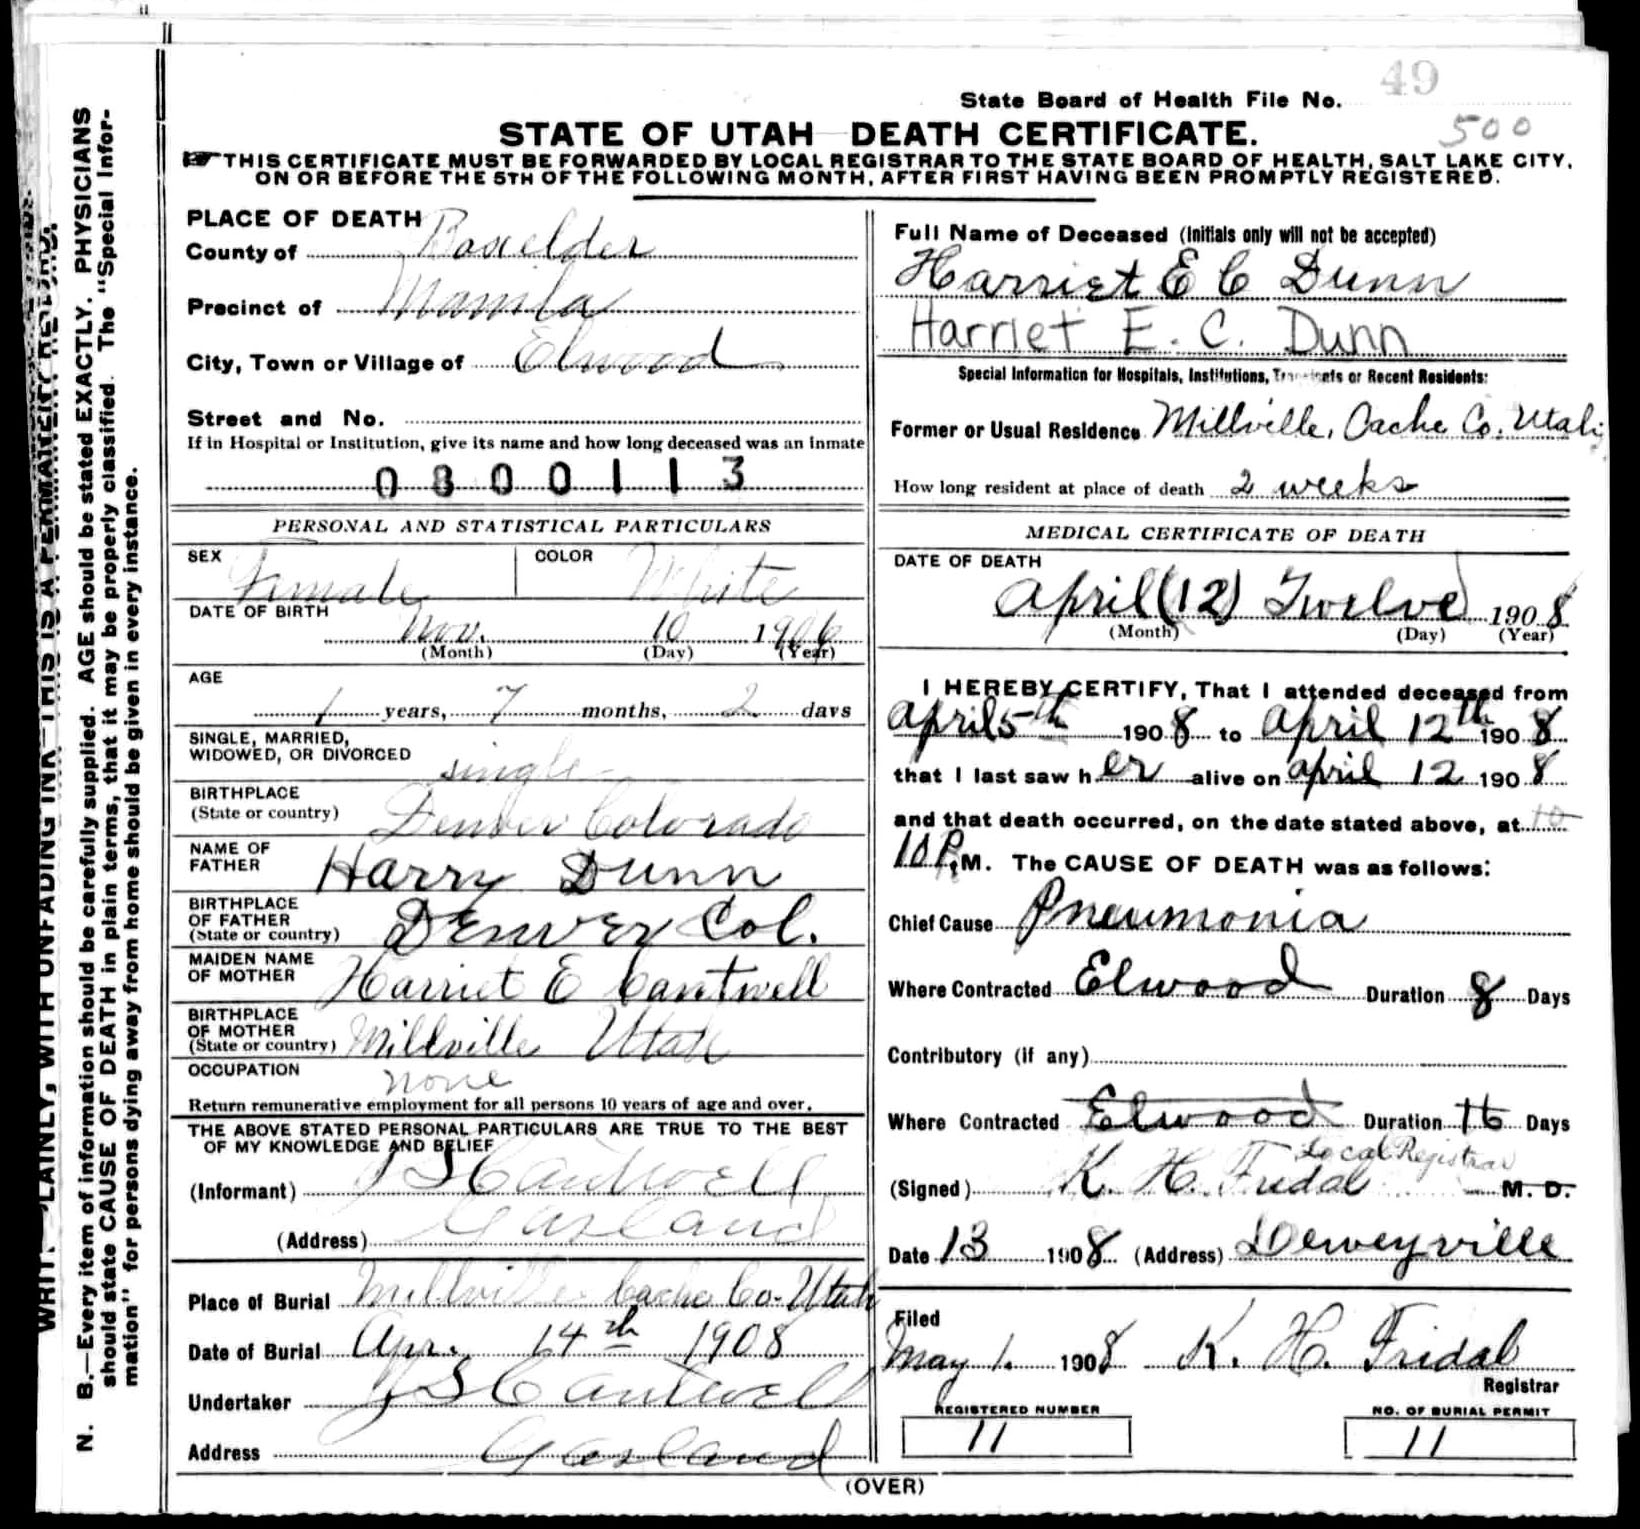 49
State Board of Health File No.
STATE OF UTAH DEATH CERTIFICATE.
500
THIS CERTIFICATE MUST BE FORWARDED BY LOCAL REGISTRAR TO THE STATE BOARD OF HEALTH, SALT LAKE CITY,
ON OR BEFORE THE 5TH OF THE FOLLOWING MONTH, AFTER FIRST HAVING BEEN PROMPTLY REGISTERED.
PLAINLY, WITH UNFADING INK—THIS IS A PERMANENT RECORD.
N. B.—Every item of information should be carefully supplied. AGE should be stated EXACTLY. PHYSICIANS
should state CAUSE OF DEATH in plain terms, that it may be properly classified. The "Special Infor-
mation" for persons dying away from home should be given in every instance.
PLACE OF DEATH
County of Boxelder
Precinct of Manila
City, Town or Village of Elwood
Street and No.
If in Hospital or Institution, give its name and how long deceased was an inmate
0800113
PERSONAL AND STATISTICAL PARTICULARS
SEX Female COLOR White
DATE OF BIRTH
Nov. 10 1906
(Month) (Day) (Year)
AGE
1 years, 7 months, 2 days
SINGLE, MARRIED,
WIDOWED, OR DIVORCED single
BIRTHPLACE
(State or country) Denver Colorado
NAME OF
FATHER Harry Dunn
BIRTHPLACE
OF FATHER
(State or country) Denver Col.
MAIDEN NAME
OF MOTHER Harriet E Cantwell
BIRTHPLACE
OF MOTHER
(State or country) Millville Utah
OCCUPATION none
Return remunerative employment for all persons 10 years of age and over.
THE ABOVE STATED PERSONAL PARTICULARS ARE TRUE TO THE BEST
OF MY KNOWLEDGE AND BELIEF
(Informant) J S Cantwell
(Address) Garland
Place of Burial Millville Cache Co. Utah
Date of Burial Apr. 14th 1908
Undertaker J S Cantwell
Address Garland
Full Name of Deceased (Initials only will not be accepted)
Harriet E C Dunn
Harriet E. C. Dunn
Special Information for Hospitals, Institutions, Transients or Recent Residents:
Former or Usual Residence Millville, Cache Co. Utah
How long resident at place of death 2 weeks
MEDICAL CERTIFICATE OF DEATH
DATE OF DEATH
April (12) Twelve 1908
(Month) (Day) (Year)
I HEREBY CERTIFY, That I attended deceased from
April 5th 1908 to April 12th 1908
that I last saw her alive on April 12 1908
and that death occurred, on the date stated above, at 10
10 P.M. The CAUSE OF DEATH was as follows:
Chief Cause Pneumonia
Where Contracted Elwood Duration 8 Days
Contributory (if any)
Where Contracted Elwood Duration 16 Days
Local Registrar
(Signed) K. H. Fridal M. D.
Date 13 1908 (Address) Deweyville
Filed
May 1. 1908 K. H. Fridal
Registrar
REGISTERED NUMBER NO. OF BURIAL PERMIT
11 11
(OVER)